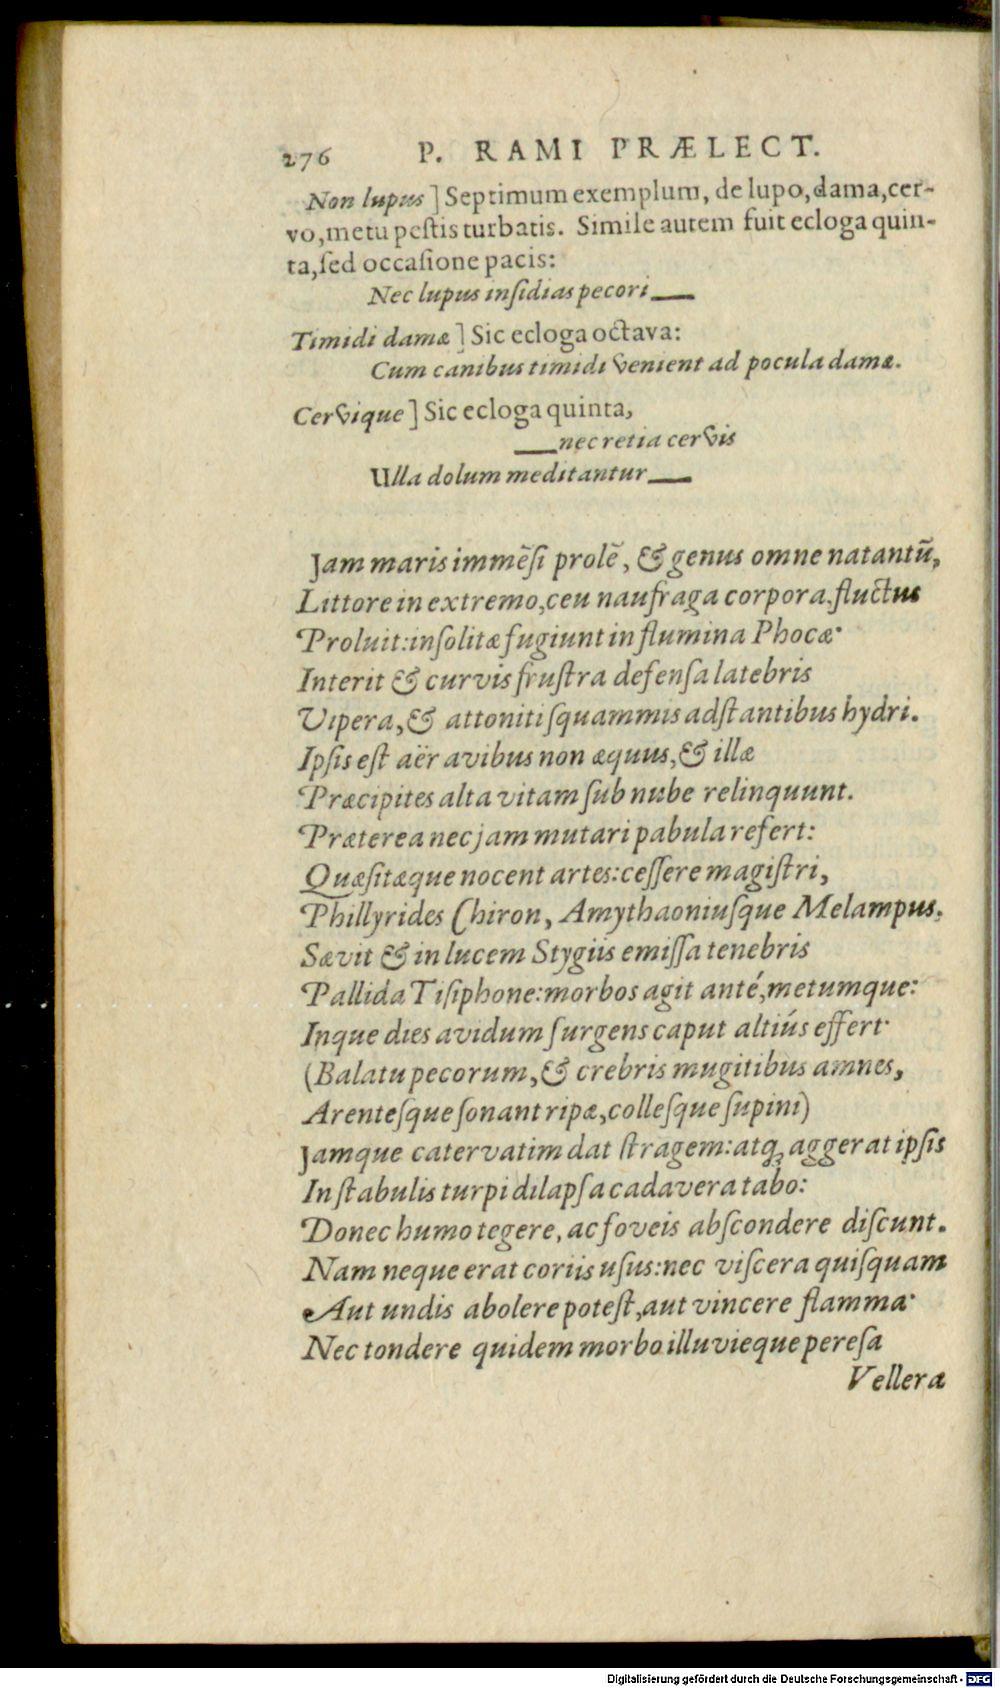 276 P. RAMI PRÆLECT.
Non lupus ] Septimum exemplum, de lupo, dama, cer-
vo, metu pestis turbatis. Simile autem fuit ecloga quin-
ta, sed occasione pacis:
Nec lupus insidias pecori —
Timidi damæ ] Sic ecloga octava:
Cum canibus timidi venient ad pocula damæ.
Cervique ] Sic ecloga quinta,
— nec retia cervis
Ulla dolum meditantur —
Jam maris immẽsi prolẽ, & genus omne natantũ,
Littore in extremo, ceu naufraga corpora, fluctus
Proluit: insolitæ fugiunt in flumina Phocæ.
Interit & curvis frustra defensa latebris
Vipera, & attoniti squammis adstantibus hydri.
Ipsis est aër avibus non æquus, & illæ
Præcipites alta vitam sub nube relinquunt.
Præterea nec jam mutari pabula refert:
Quæsitæque nocent artes: cessere magistri,
Phillyrides Chiron, Amythaoniusque Melampus.
Sævit & in lucem Stygiis emissa tenebris
Pallida Tisiphone: morbos agit anté, metumque:
Inque dies avidum surgens caput altiús effert.
(Balatu pecorum, & crebris mugitibus amnes,
Arentesque sonant ripæ, collesque supini)
Jamque catervatim dat stragem: atq; aggerat ipsis
In stabulis turpi dilapsa cadavera tabo:
Donec humo tegere, ac foveis abscondere discunt.
Nam neque erat coriis usus: nec viscera quisquam
Aut undis abolere potest, aut vincere flamma.
Nec tondere quidem morbo illuvieque peresa
Vellera
Digitalisierung gefördert durch die Deutsche Forschungsgemeinschaft - DFG